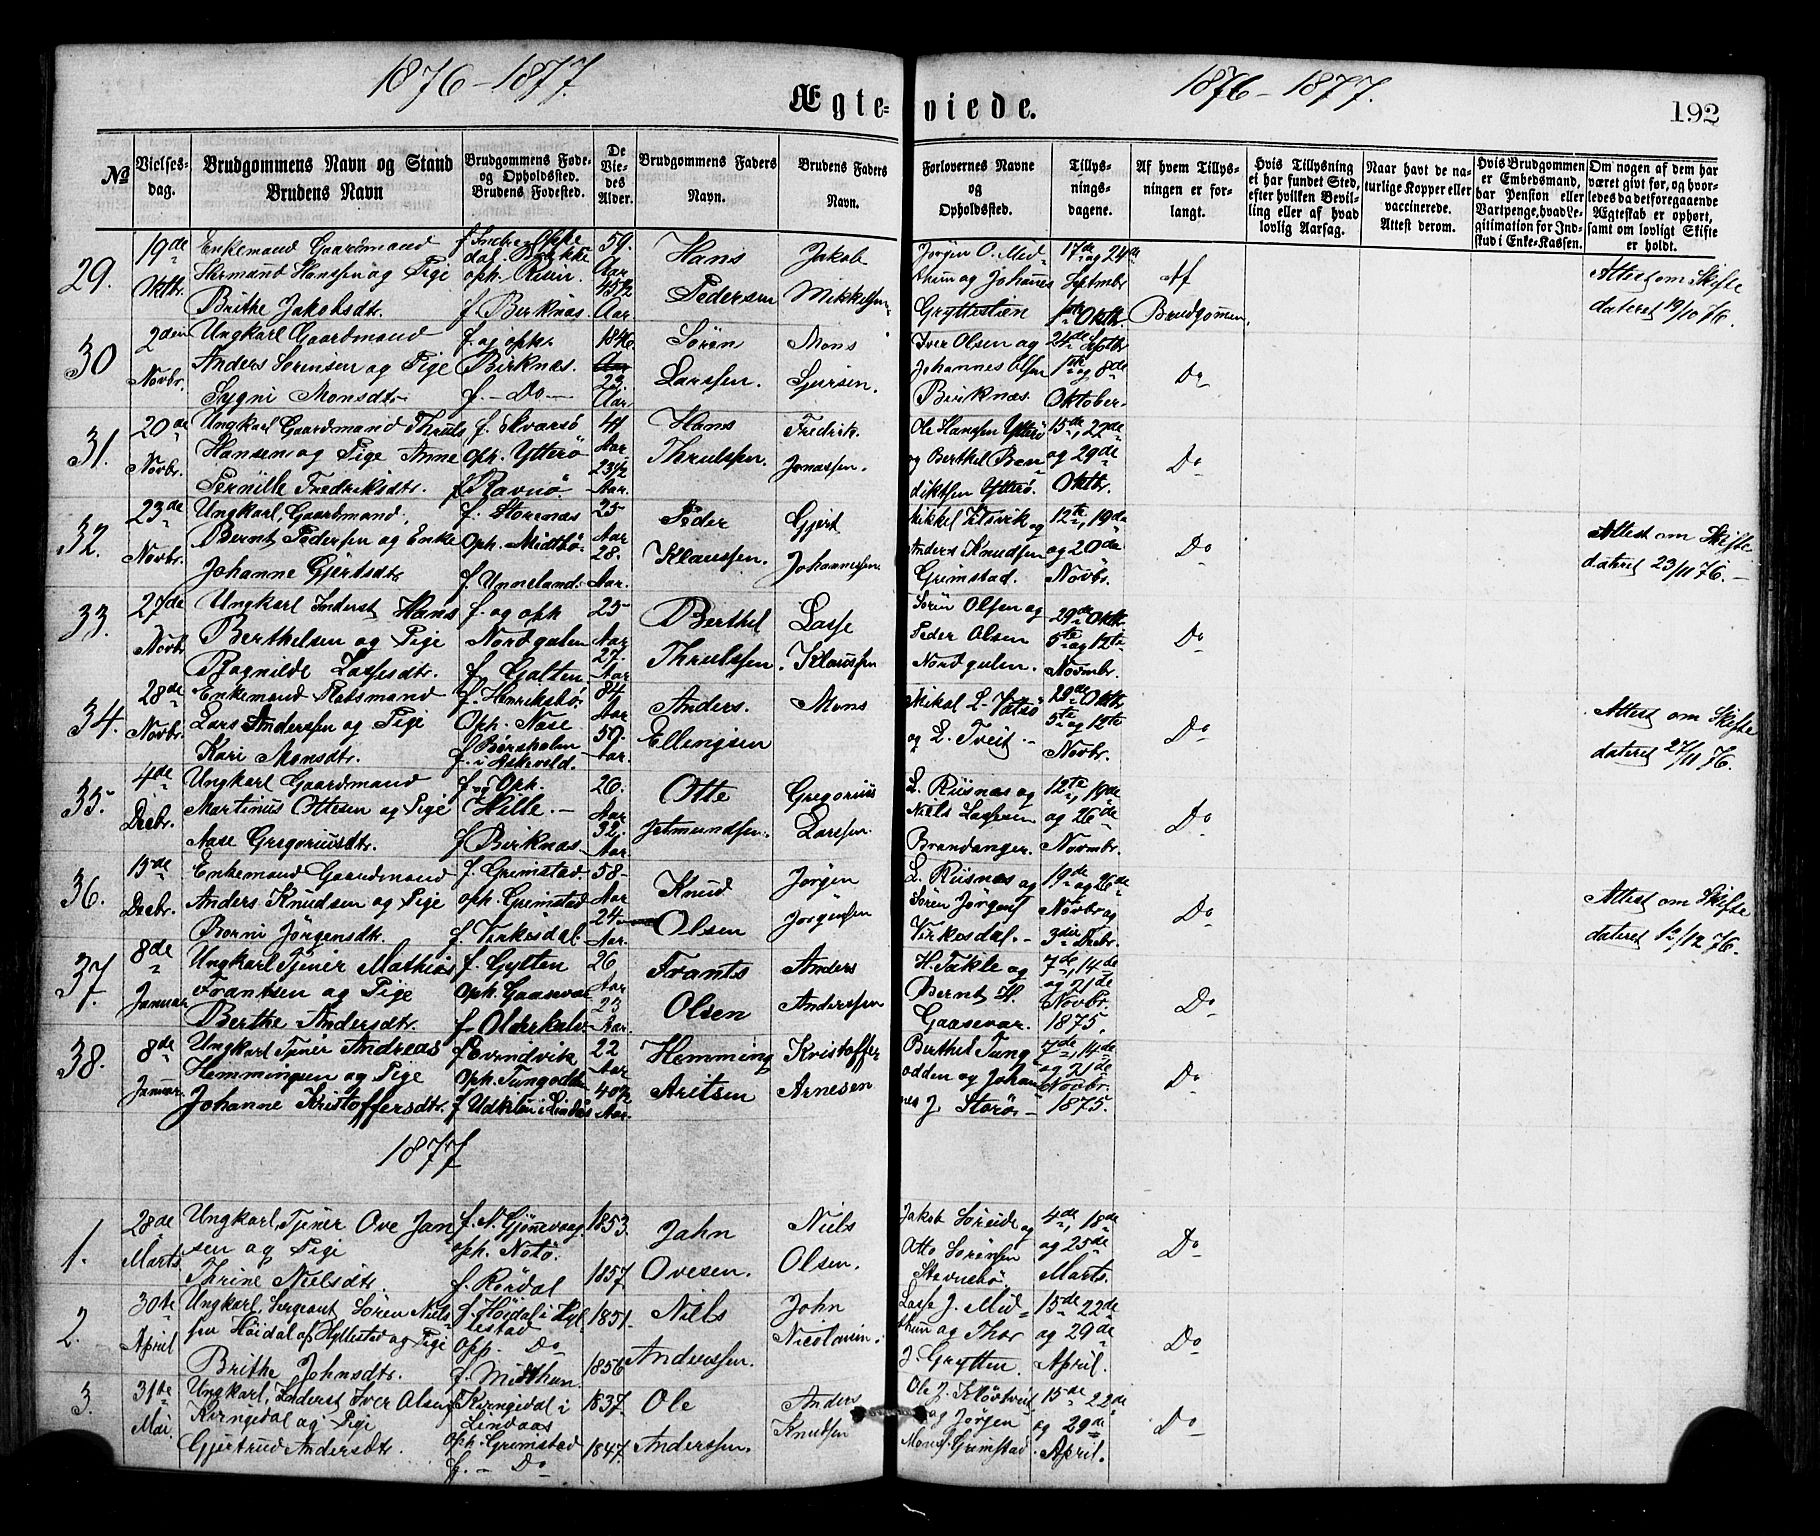 1876-1877.
1876-1877.
Ægteviede.
192
No
Vielses-dag.
Brudgommens Navn og Stand
Brudens Navn
Brudgommens Føde- og Opholdssted.
Brudens Fødested.
De Viedes Alder.
Brudgommens Faders Navn.
Brudens Faders Navn.
Forlovernes Navne og Opholdssted.
Tillysningsdagene.
Af hvem Tillysningen er forlangt.
Hvis Tillysning ei har fundet Sted, efter hvilken Bevilling eller af hvad lovlig Aarsag.
Naar havt de naturlige Kopper eller vaccinerede. Attest derom.
Hvis Brudgommen er Embedsmand, har Pension eller Vartpenge, hvad Legitimation for Indskud i Enke-Kassen.
Om nogen af dem har været givt før, og hvorledes da det foregaaende Ægteskab er ophørt, samt om lovligt Skifte er holdt.
29.
19de Oktbr.
Enkemand Gaardmand
Hermand Hanssen og Pige
Brithe Jakobsdtr.
f. Indre Oppedal
oph. Risin.
f. Birknæs.
59. Aar
45 1/2 Aar.
Hans
Pedersen
Jakob
Mikkelsen
Jørgen O. Midthun og Johanes
Gryttestien
17de og 24de
Septmbr
1ste Oktbr.
Af
Brudgomen.
Attest om Skifte
dateret 19/10 76.
30
2den Novbr.
Ungkarl Gaardmand
Anders Sørensen og Pige
Sygni Monsdtr.
f. og oph.
Birknæs.
f. - Do -
1846.
23. Aar.
Søren
Larssen.
Mons
Sjursen.
Iver Olsen og
Johannes Olsen
Birknæs
24de Septbr
1ste og 8de
Oktober
Do
31.
20de Novbr.
Ungkarl Gaardmand Thruls
Hansen og Pige Anne
Pernille Fredriksdtr.
f. Kvarsø
oph. Ytterø
f. Ravnø.
41 Aar
23 1/2 Aar.
Hans
Thrulssen.
Fredrik
Jonassen.
Ole Hanssen Ytterø
og Berthel Bendiktsen Ytterø.
15de, 22de
og 29de
Oktbr.
Do
32.
23de Novbr.
Ungkarl, Gaardmand,
Bernt Pedersen og Enke
Johanne Gjertsdtr
f. Storenæs
Oph. Midtbø
f. Unneland.
25 Aar
28. Aar.
Peder
Klaussen.
Gjert
Johannessen.
Mikkel Vilsvik og
Anders Knudsen
Grimstad.
12te, 19de
og 20de
Novbr.
Do
Attest om Skifte
dateret 23/11 76.-
33.
27de Novbr
Ungkarl Inderst Hans
Berthelsen og Pige
Ragnilde Lassesdtr.
f. og oph
Nordgulen
f. Galten
25 Aar
27. Aar
Berthel
Thrulssen
Lasse
Klaussen
Søren Olsen og
Peder Olsen
Nordgulen.
29de Oktbr.
5te og 12te
Novmbr.
Do
34.
28de Novbr.
Enkemand Pladsmand
Lars Anderssen og Pige
Kari Monsdtr.
f. Henriksbø.
Oph. Nase
f. Børsholm
f. i Askevold.
84 Aar
59. Aar.
Anders.
Ellingsen
Mons
og L. Tveit.
29de Oktbr
5te og 12te
Novbr.
Do
Attest om Skifte
dateret 27/11 76.
35.
4de Decbr.
Ungkarl Gaardmand
Martinus Ottesen og Pige
Aase Gregoriusdtr.
f. og Oph.
Hille.
f. Birknæs
26. Aar
32. Aar.
Otte
Jetmundsen.
Gregorius
Larssen.
L. Riisnæs og
Niels Lassesen
Brandanger.
12te, 19de
og 26de
Novmbr.
Do
36.
15de Decbr.
Enkemand Gaardmand
Anders Knudsen og Pige
Borni Jørgensdtr.
f. Grimstad.
oph. Grimstad
f. Virkesdal.
58 Aar
24 Aar.
Knud
Olsen
Jørgen
Jørgensen
L. Riisnæs og
Søren Jørgens.
Virkesdal.
19de og 26de
Novbr og
3die Decbr.
Do
Attest om Skifte
dateret 12/12 76.
37.
8de Januar
Ungkarl Tjener Mathias
Frantsen og Pige
Berthe Andersdtr.
f. Gylten
Oph. Gaasevær
f. Olderkalv
26 Aar
23 Aar.
Frants
Olsen
Anders
Anderssen
H. Takle og
Bernt H.
Gaasevær.
7de, 14de
og 21de
Novbr.
1875.
Do
38.
8de Januar.
Ungkarl Tjener Andreas
Hemmingsen og Pige
Johanne Kristoffersdtr.
f. Evindvik
Oph. Tungodden
f. Udkilen i Lindås
22 Aar
40 1/2 Aar.
Hemming
Aritsen
Kristoffer
Arnesen
Berthel Tungodden og Johannes J. Storø
7de, 14de
og 21de
Novbr.
1875.
Do
1877
1.
28de Marts
Ungkarl, Tjener Ove Jansen og Pige
Thrine Nielsdtr.
f. N. Gjønevaag.
oph. Notø.
f. Rørdal
1853.
1857.
Jahn
Ovesen.
Niels
Olsen.
Jakob Søreide og
Otto Sørensen
Stevnebø.
4de, 18de
og 25de
Marts.
Do
2.
30te April
Ungkarl, Sergeant Søren Nielssen Høidal af Hyllestad og Pige
Brithe Johnsdtr.
f. Høidal i Hyllestad
opp. Do
f. Midthun.
1851.
1856
Niels
Anderssen.
John
Nicolaisen.
Lasse J. Midthun og Thor
J. Grytten.
15de 22de
og 29de
April.
Do
3.
31te Mai.
Ungkarl, Inderst Iver Olsen
Kvingedal og Pige
Gjertrud Andersdtr.
f. Kvingedal i
Lindaas
oph. Grimstad
f. - Do
1837.
1847.
Ole
Anderssen.
Anders
Knudsen
Ole J. Kløvtveit
og Jørgen
Mons. Grimstad.
15de 22de
og 29de
April.
Do